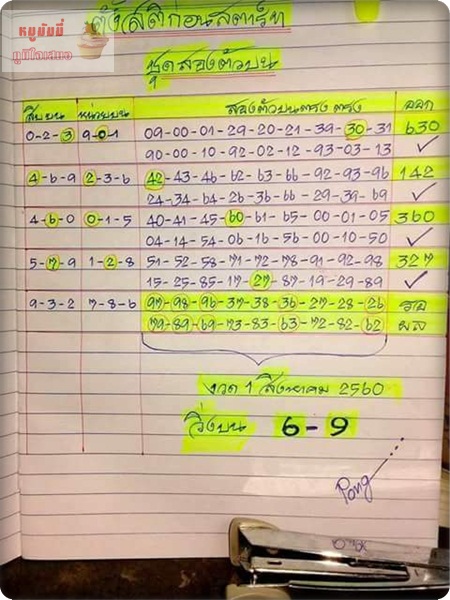 หมูมัมมี่
ภูมิใจเสนอ
ตั้งสติก่อนสตาร์ท
ชุดสองตัวบน
สิบบน หน่วยบน สองตัวบนตรง ตรง ออก
0-2-3 9-0-1 09-00-01-29-20-21-39-30-31 630
90-00-10-92-02-12-93-03-13 ✓
4-6-9 2-3-6 42-43-46-62-63-66-92-93-96 142
24-34-64-26-36-66-29-39-69 ✓
4-6-0 0-1-5 40-41-45-60-61-65-00-01-05 360
04-14-54-06-16-56-00-10-50 ✓
5-7-9 1-2-8 51-52-58-71-72-78-91-92-98 327
15-25-85-17-27-87-19-29-89 ✓
9-3-2 7-8-6 97-98-96-37-38-36-27-28-26 รอ
79-89-69-73-83-63-72-82-62 ผล
งวด 1 สิงหาคม 2560
วิ่งบน 6-9
Pong